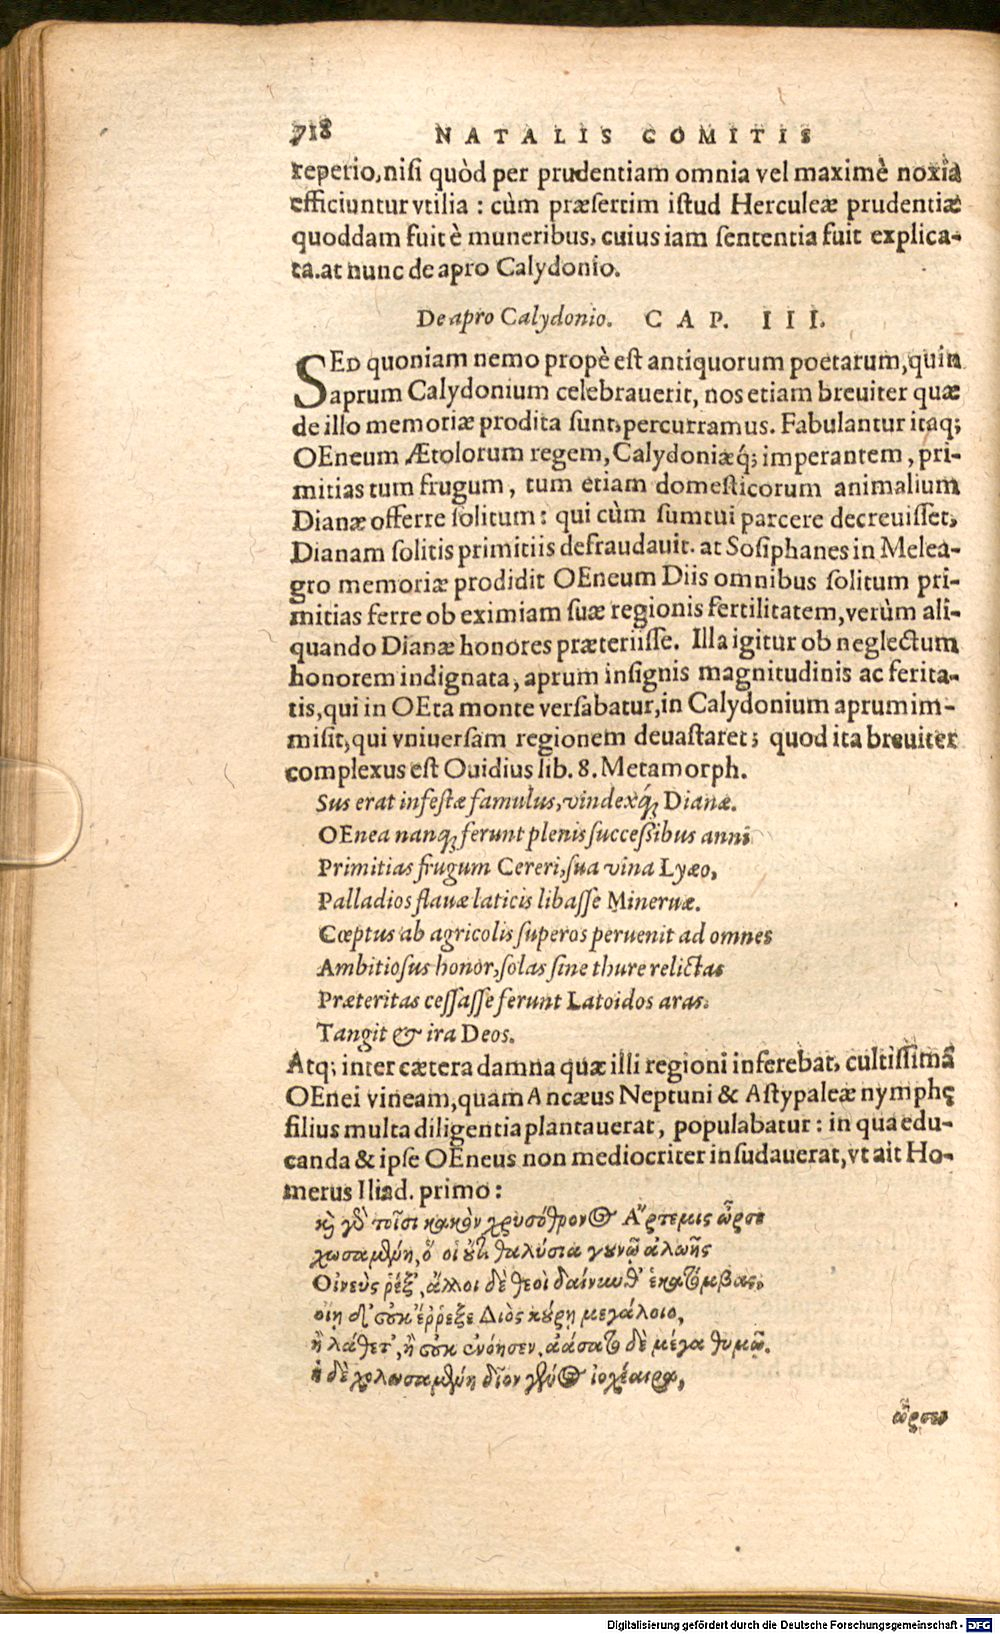 718 NATALIS COMITIS
reperio, nisi quòd per prudentiam omnia vel maximè noxia
efficiuntur vtilia : cùm præsertim istud Herculeæ prudentiæ
quoddam fuit è muneribus, cuius iam sententia fuit explica-
ta. at nunc de apro Calydonio.
De apro Calydonio. CAP. III.
SED quoniam nemo propè est antiquorum poetarum, quin
aprum Calydonium celebrauerit, nos etiam breuiter quæ
de illo memoriæ prodita sunt, percurramus. Fabulantur itaq;
OEneum Ætolorum regem, Calydoniæq́; imperantem, pri-
mitias tum frugum, tum etiam domesticorum animalium
Dianæ offerre solitum: qui cùm sumtui parcere decreuisset,
Dianam solitis primitiis defraudauit. at Sosiphanes in Melea-
gro memoriæ prodidit OEneum Diis omnibus solitum pri-
mitias ferre ob eximiam suæ regionis fertilitatem, verùm ali-
quando Dianæ honores præteriisse. Illa igitur ob neglectum
honorem indignata, aprum insignis magnitudinis ac ferita-
tis, qui in OEta monte versabatur, in Calydonium aprum im-
misit, qui vniuersam regionem deuastaret; quod ita breuiter
complexus est Ouidius lib. 8. Metamorph.
Sus erat infestæ famulus, vindexq́; Dianæ.
OEnea nanq; ferunt plenis successibus anni
Primitias frugum Cereri, sua vina Lyæo,
Palladios flauæ laticis libasse Mineruæ.
Cœptus ab agricolis superos peruenit ad omnes
Ambitiosus honor, solas sine thure relictas
Præteritas cessasse ferunt Latoidos aras.
Tangit & ira Deos.
Atq; inter cætera damna quæ illi regioni inferebat, cultissimã
OEnei vineam, quam Ancæus Neptuni & Astypaleæ nymphę
filius multa diligentia plantauerat, populabatur : in qua edu-
canda & ipse OEneus non mediocriter insudauerat, vt ait Ho-
merus Iliad. primo:
κὶ γὸ τοῖσι κακὸν χρυσόθρονος Ἄρτεμις ὦρσε
χωσαμένη, ὅ οἱ ὔτι θαλύσια γουνῷ ἀλωῆς
Οἰνεὺς ῥέξ', ἄλλοι δὲ θεοὶ δαίνυνθ' ἑκατόμβας,
οἴῃ δ' οὐκ ἔῤῥεξε Διὸς κούρῃ μεγάλοιο,
ἢ λάθετ', ἢ οὐκ ἐνόησεν, ἀάσατο δὲ μέγα θυμῷ.
ἡ δὲ χολωσαμένη δῖον γένος ἰοχέαιρα,
ὦρσεν
Digitalisierung gefördert durch die Deutsche Forschungsgemeinschaft - DFG